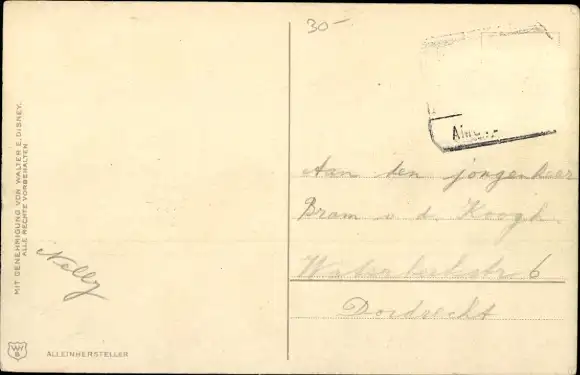 30-
Aan den jongenheer
Bram v. d. Koogh.
6
Dordrecht
Nelly
MIT GENEHMIGUNG VON WALTER E. DISNEY.
ALLE RECHTE VORBEHALTEN
W
S
B
ALLEINHERSTELLER